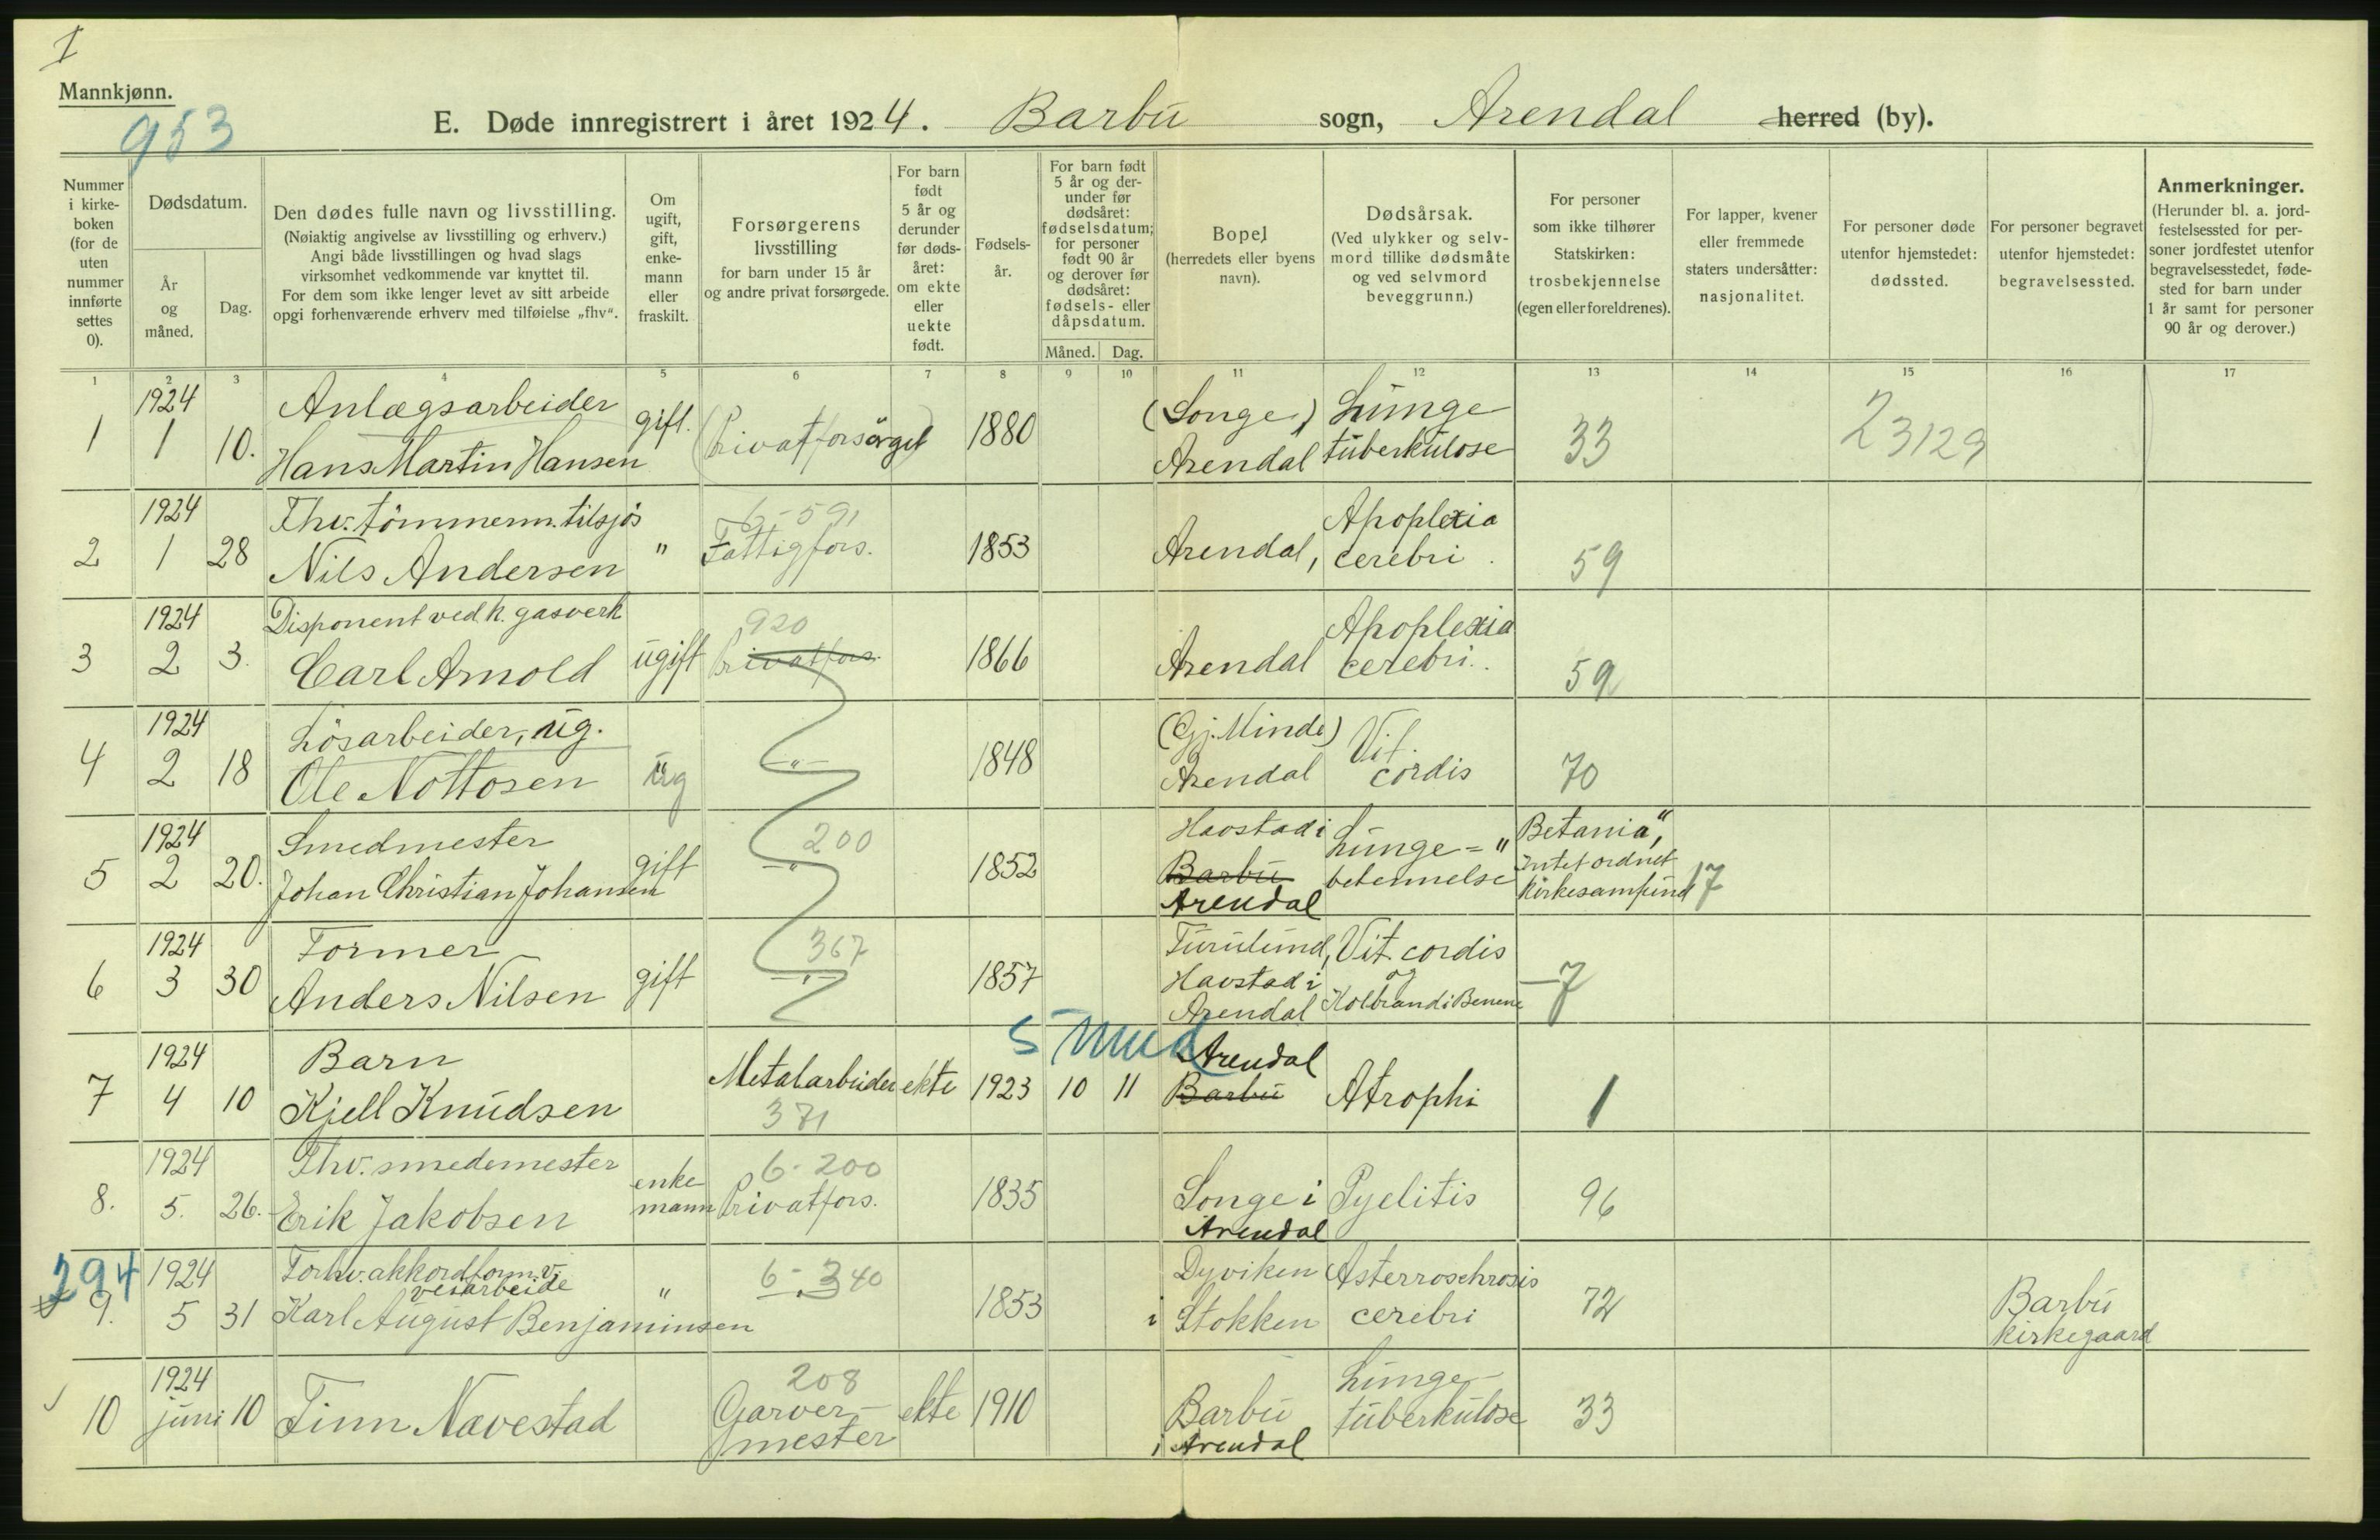 I
Mannkjønn.
953
E. Døde innregistrert i året 1924. Barbu sogn, Arendal herred (by).
Nummer i kirke- boken (for de uten nummer innførte settes 0).
Dødsdatum.
År og måned.
Dag.
Den dødes fulle navn og livsstilling.
(Nøiaktig angivelse av livsstilling og erhverv.)
Angi både livsstillingen og hvad slags
virksomhet vedkommende var knyttet til.
For dem som ikke lenger levet av sitt arbeide
opgi forhenværende erhverv med tilføielse „fhv“.
Om ugift, gift, enke- mann eller fraskilt.
Forsørgerens
livsstilling
for barn under 15 år
og andre privat forsørgede.
For barn født 5 år og derunder før døds- året: om ekte eller uekte født.
Fødsels- år.
For barn født 5 år og der- under før dødsåret: fødselsdatum; for personer født 90 år og derover før dødsåret: fødsels- eller dåpsdatum.
Måned.
Dag.
Bopel
(herredets eller byens
navn).
Dødsårsak.
(Ved ulykker og selv-
mord tillike dødsmåte
og ved selvmord
beveggrunn.)
For personer
som ikke tilhører
Statskirken:
trosbekjennelse
(egen eller foreldrenes).
For lapper, kvener
eller fremmede
staters undersåtter:
nasjonalitet.
For personer døde
utenfor hjemstedet:
dødssted.
For personer begravet
utenfor hjemstedet:
begravelsessted.
Anmerkninger.
(Herunder bl. a. jord-
festelsessted for per-
soner jordfestet utenfor
begravelsesstedet, føde-
sted for barn under
1 år samt for personer
90 år og derover.)
1 2 3 4 5 6 7 8 9 10 11 12 13 14 15 16 17
1924 Anlægsarbeider (Songe) Lunge
1 1 10. Hans Martin Hansen gift. (Privatforsörget) 1880 Arendal tuberkulose 33 23129
1924 Fhv. tömmerm. tilsjös 6-591 Apoplexia
2 1 28 Nils Andersen " Fattigfors. 1853 Arendal, cerebri. 59
1924 Disponent ved k. gasverk 920 Apoplexia
3 2 3. Carl Arnold ugift Privatfors. 1866 Arendal cerebri. 59
1924 Lösarbeider, ug. (Gj. Minde) Vit.
4 2 18 Ole Nottosen ug -"- 1848 Arendal cordis 70
1924 Smedmester 200 Havstad i Lunge= "Betania",
5 2 20. Johan Christian Johansen gift -"- 1852 Barbu betennelse Intet ordnet
Arendal kirkesamfund 17
1924 Former 367 Furulund, Vit. cordis
6 3 30 Anders Nilsen gift -"- 1857 Havstad i og 7
Arendal Kolbrand i Benene
1924 Barn 5 mnd Arendal
7 4 10 Kjell Knudsen Metalarbeider ekte 1923 10 11 Barbu Atrophi 1
371
1924 Fhv. smedemester enke 6-200
8. 5. 26. Erik Jakobsen mann Privatfors. 1835 Songe i Pyelitis 96
Arendal
294 1924 Forhv. akkordform. v. 6-340 Dyviken Asterroschrosis
verarbeide
9. 5 31 Karl August Benjaminsen " 1853 i Stokken cerebri 72 Barbu
kirkegaard
1924 208 Lunge-
10 juni 10 Finn Navestad Garver- ekte 1910 Barbu tuberkulose 33
mester i Arendal